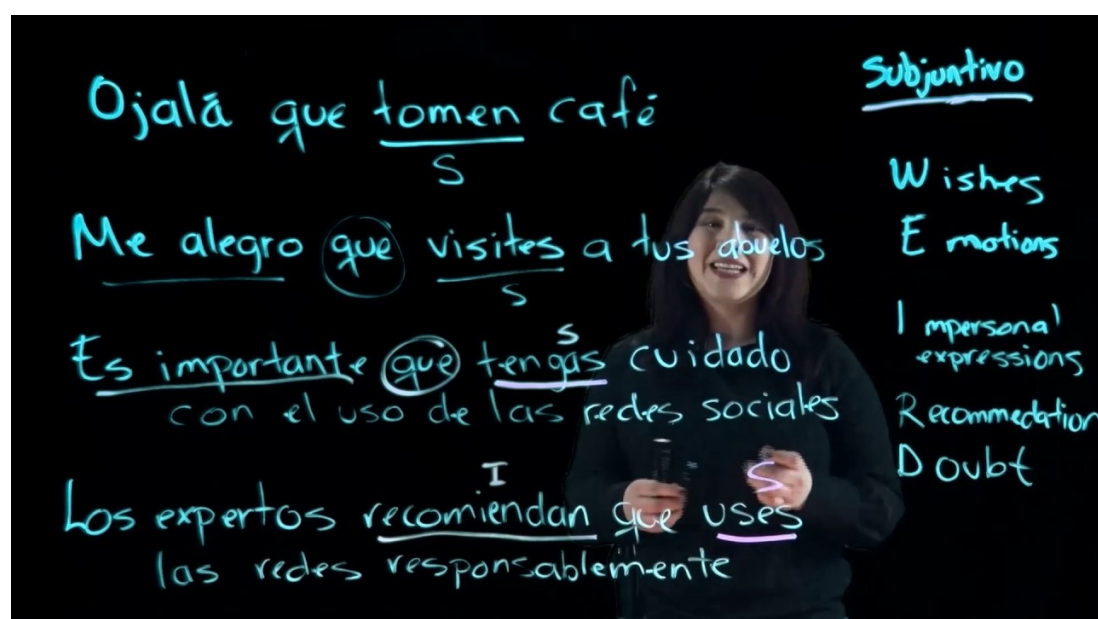 Ojalá que tomen café
S
Me alegro que visites a tus abuelos
S
S
Es importante que tengas cuidado
con el uso de las redes sociales
I
S
Los expertos recomiendan que uses
las redes responsablemente
Subjuntivo
Wishes
Emotions
Impersonal
expressions
Recommedation
Doubt